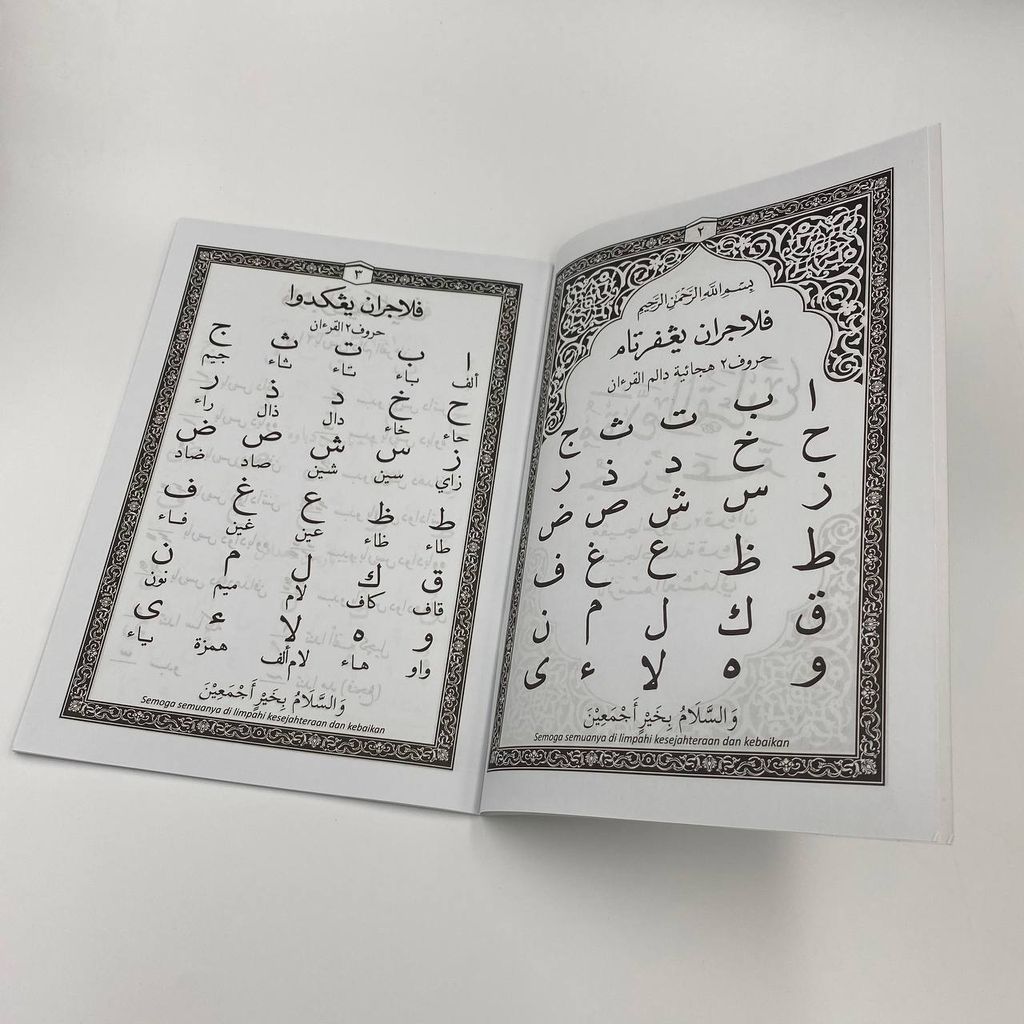 ٢
بِسْمِ اللَّهِ الرَّحْمَٰنِ الرَّحِيمِ
فلاجران يڠفرتام
حروف٢ هجائية دالم القرءان
ا ب ت ث ج
ح خ د ذ ر
ز س ش ص ض
ط ظ ع غ ف
ق ك ل م ن
و ه لا ء ى
وَالسَّلَامُ بِخَيْرٍ أَجْمَعِيْنَ
Semoga semuanya di limpahi kesejahteraan dan kebaikan
٣
فلاجران يڠكدوا
حروف٢ القرءان
ا ب ت ث ج
ألف باء تاء ثاء جيم
ح خ د ذ ر
حاء خاء دال ذال راء
ز س ش ص ض
زاي سين شين صاد ضاد
ط ظ ع غ ف
طاء ظاء عين غين فاء
ق ك ل م ن
قاف كاف لام ميم نون
و ه لا ء ى
واو هاء لام ألف همزة ياء
وَالسَّلَامُ بِخَيْرٍ أَجْمَعِيْنَ
Semoga semuanya di limpahi kesejahteraan dan kebaikan